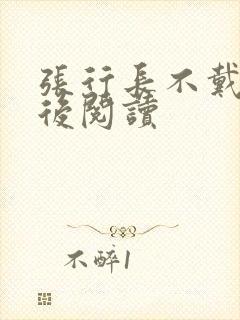 張行長不戴
後閱讀
不醉1